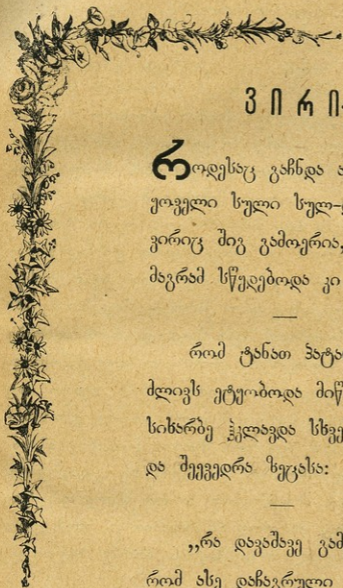 ვირი
როდესაც გაჩნდა
ყოველი სული სულ-
ვირიც შიგ გამოერია,
მაგრამ სწყდებოდა კი
რომ ტანათ პატა
ძლივს ეტყობოდა მიწ
სიხარბე ჰკლავდა სხვე
და შეევედრა ზეცასა:
„რა დავაშავე გამ
რომ ასე დაჩაგრული